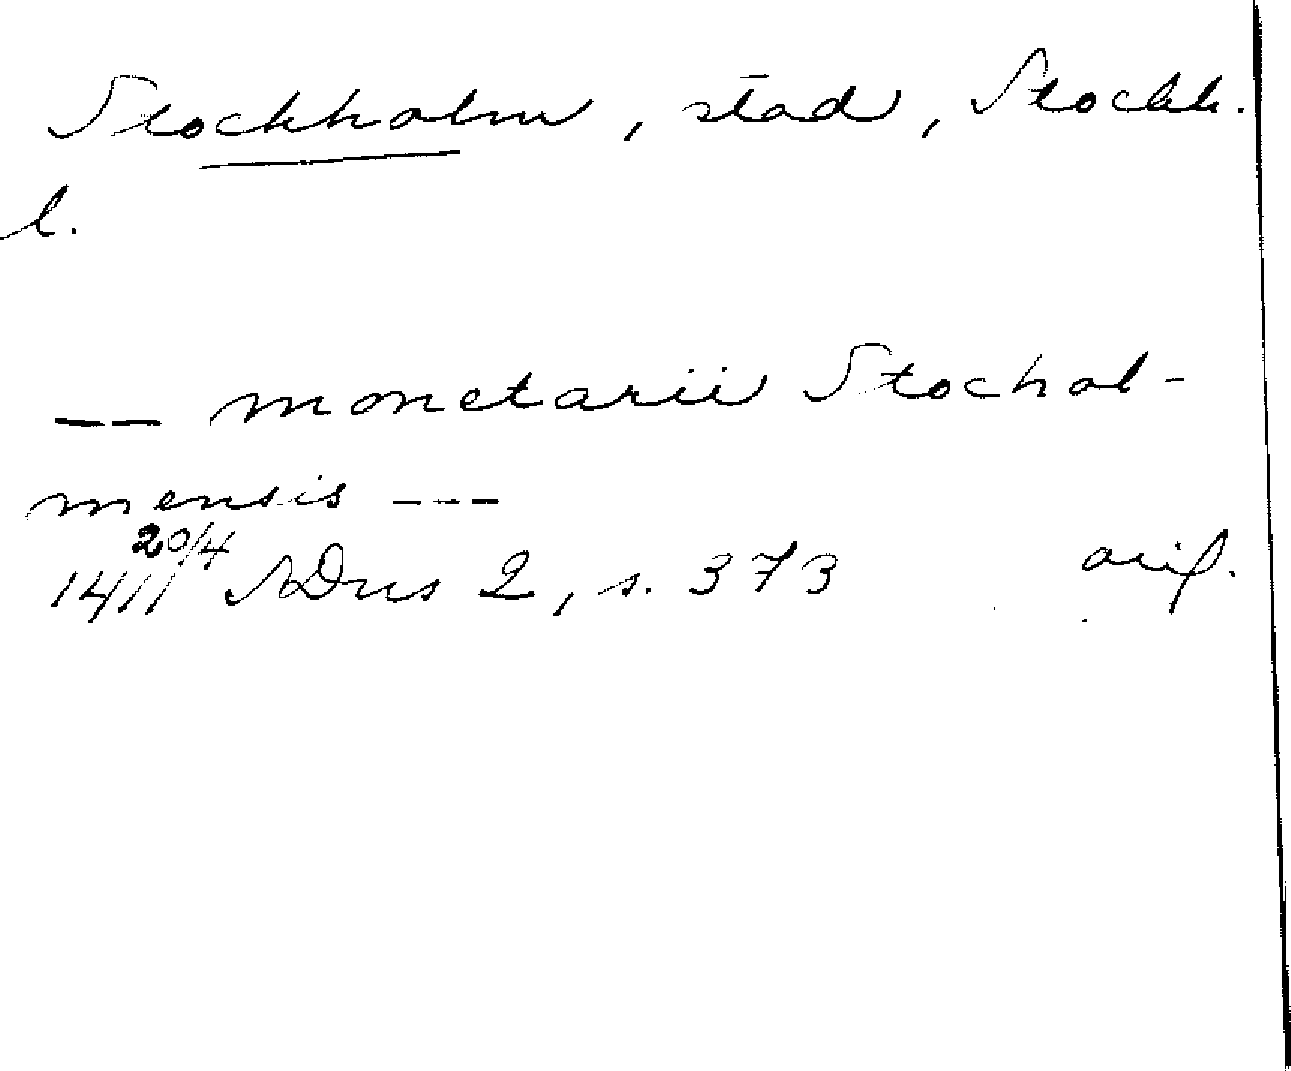 Stockholm, stad, Stockh.
l.
-- monetarii Stochol-
mensis ---
20/4
1411 SDns 2, s. 373 orig.